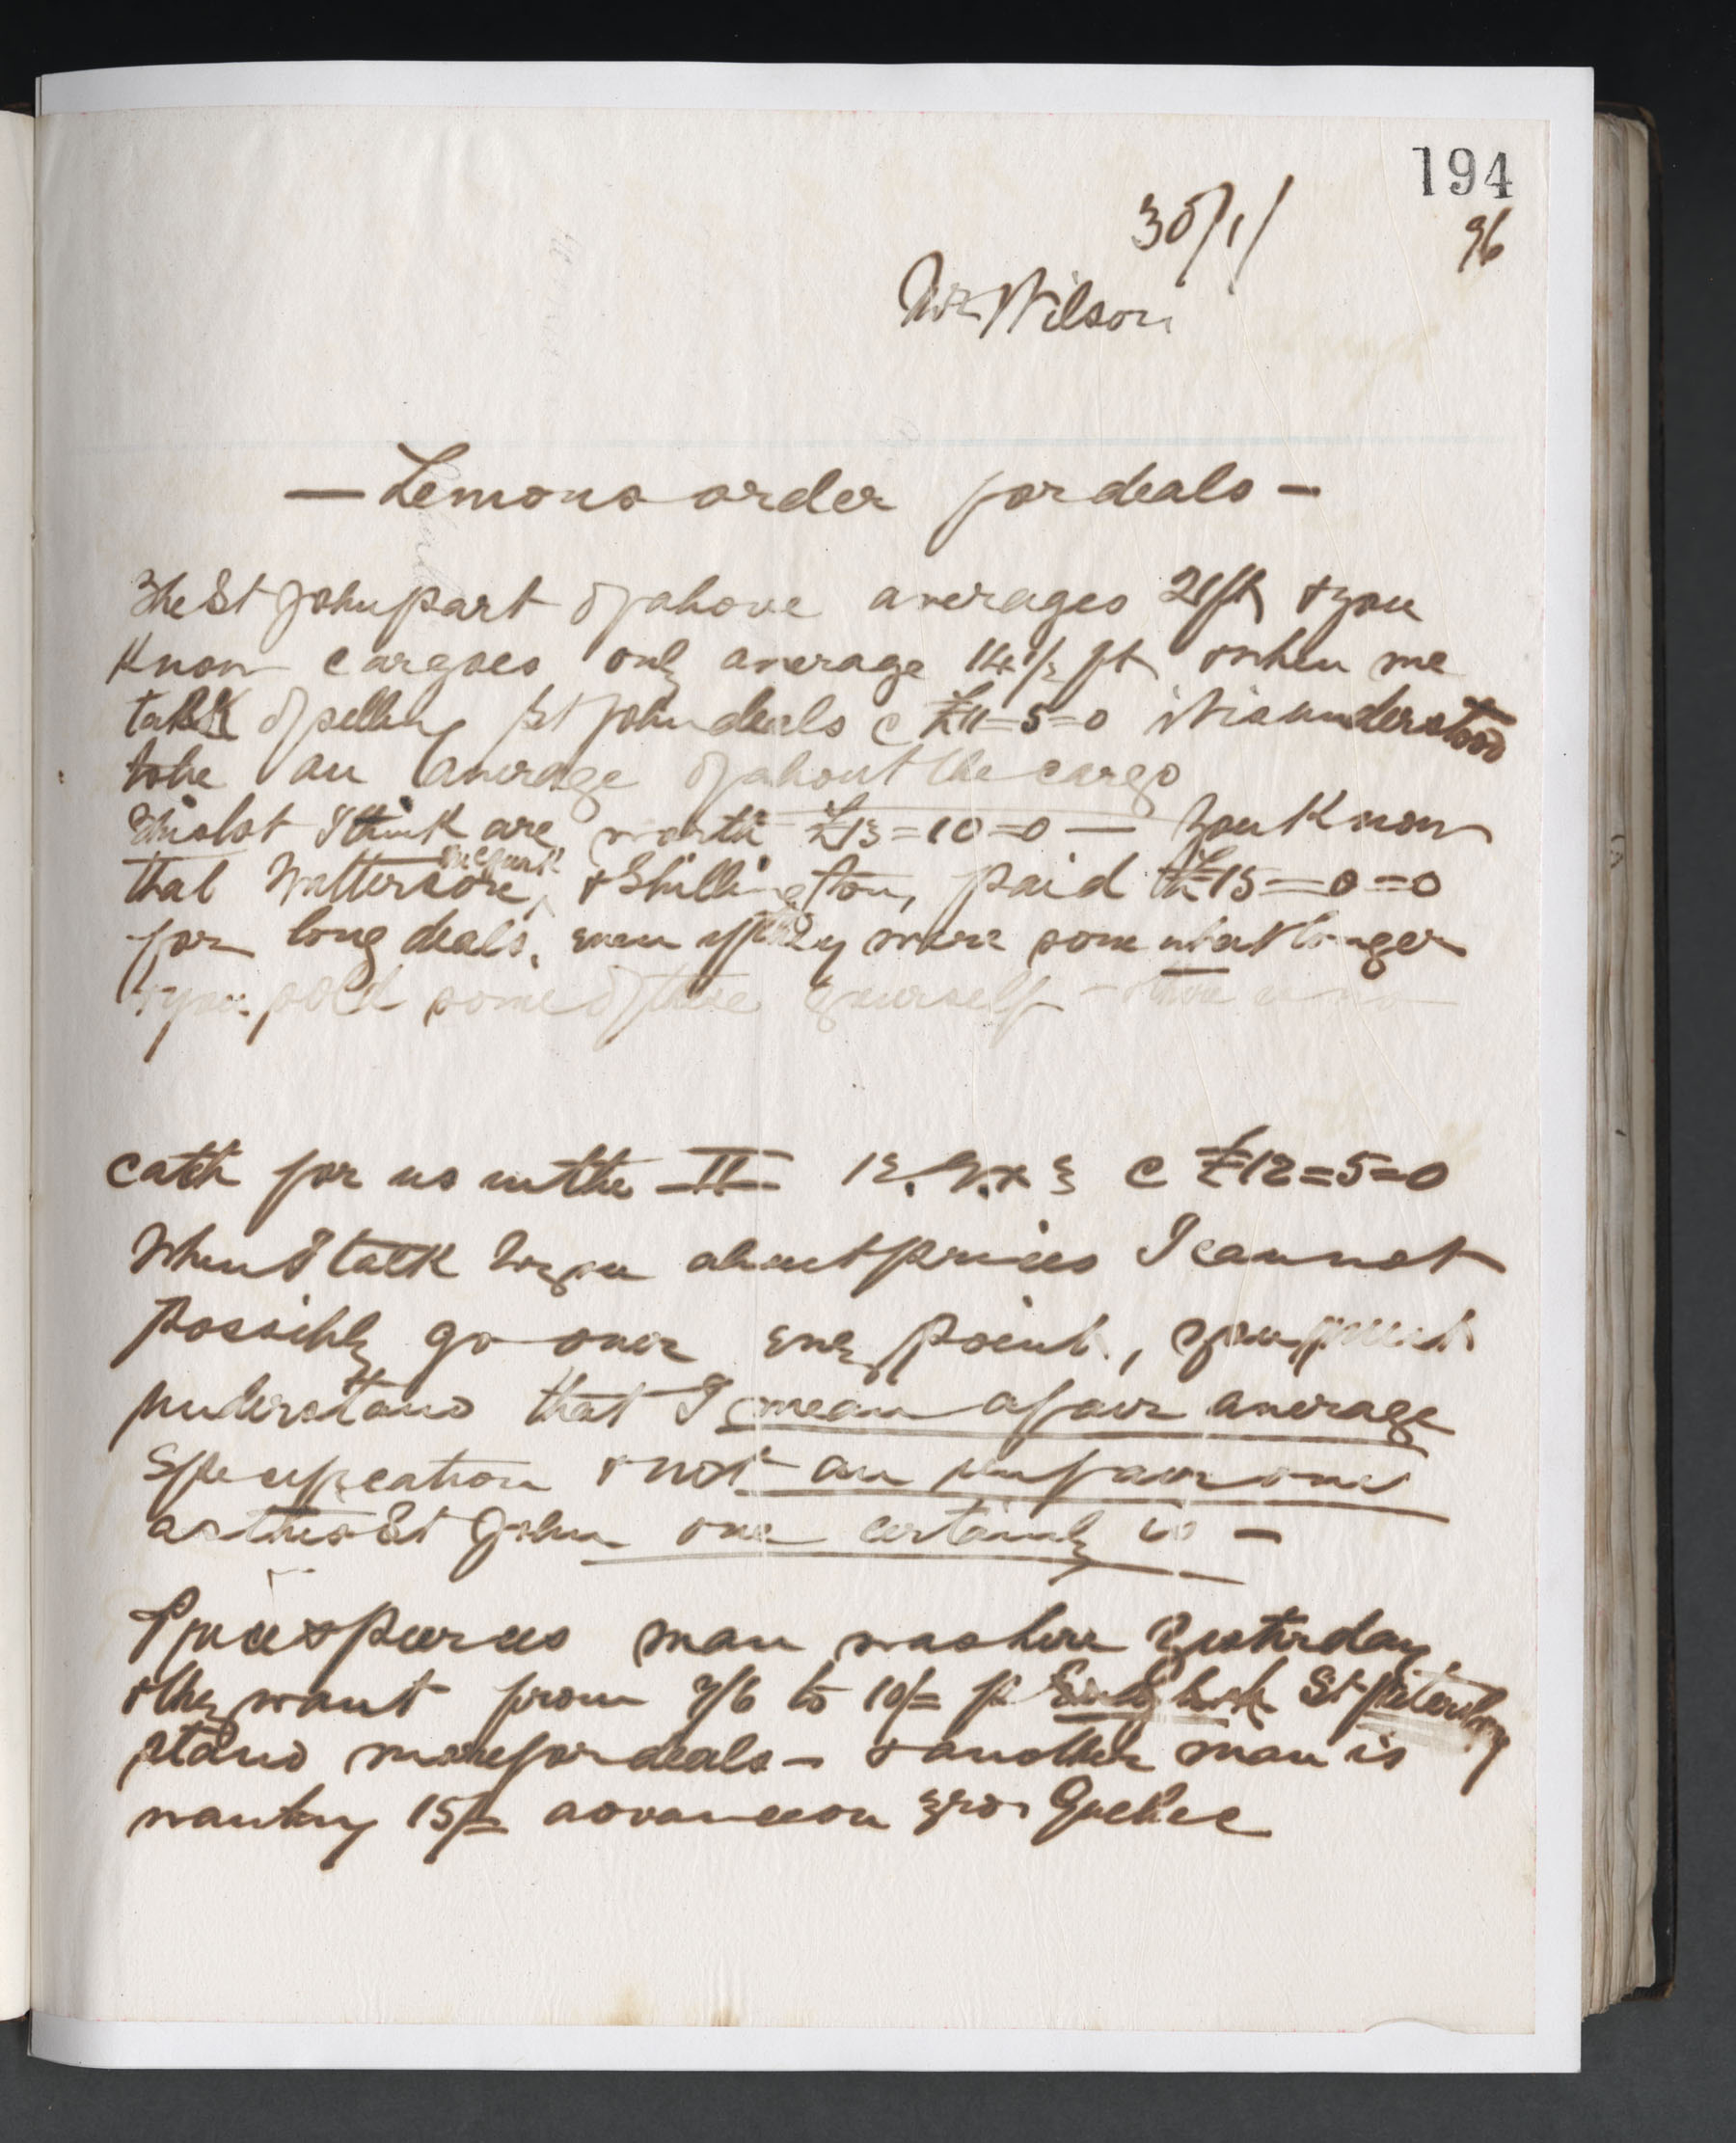 194
30/1/ 96
Mr Wilson
— Lemons order for deals —
The St John part of above averages 21ft & you
know cargoes only average 14 1/2 ft & when we
talk of selling St John deals @ £11=5=0 it is understood
to be an average of about the cargo
Whilst I think are worth £13=10=0 — You know
that Wattersons, & Shillington, paid £15=0=0
for long deals, even if they were some what longer
& you sold some of these yourself —
catch for us in the II 12. 9. x 3 @ £12=5=0
When I talk to you about prices I cannot
possibly go over every point, & you must
understand that I mean a fair average
specification & not an unfair one
as this St John one certainly is —
Price & Pierces man was here yesterday
& they want from 7/6 to 10/= p St Petersburg
stand more for deals — & another man is
wanting 15/= advance on Quebec